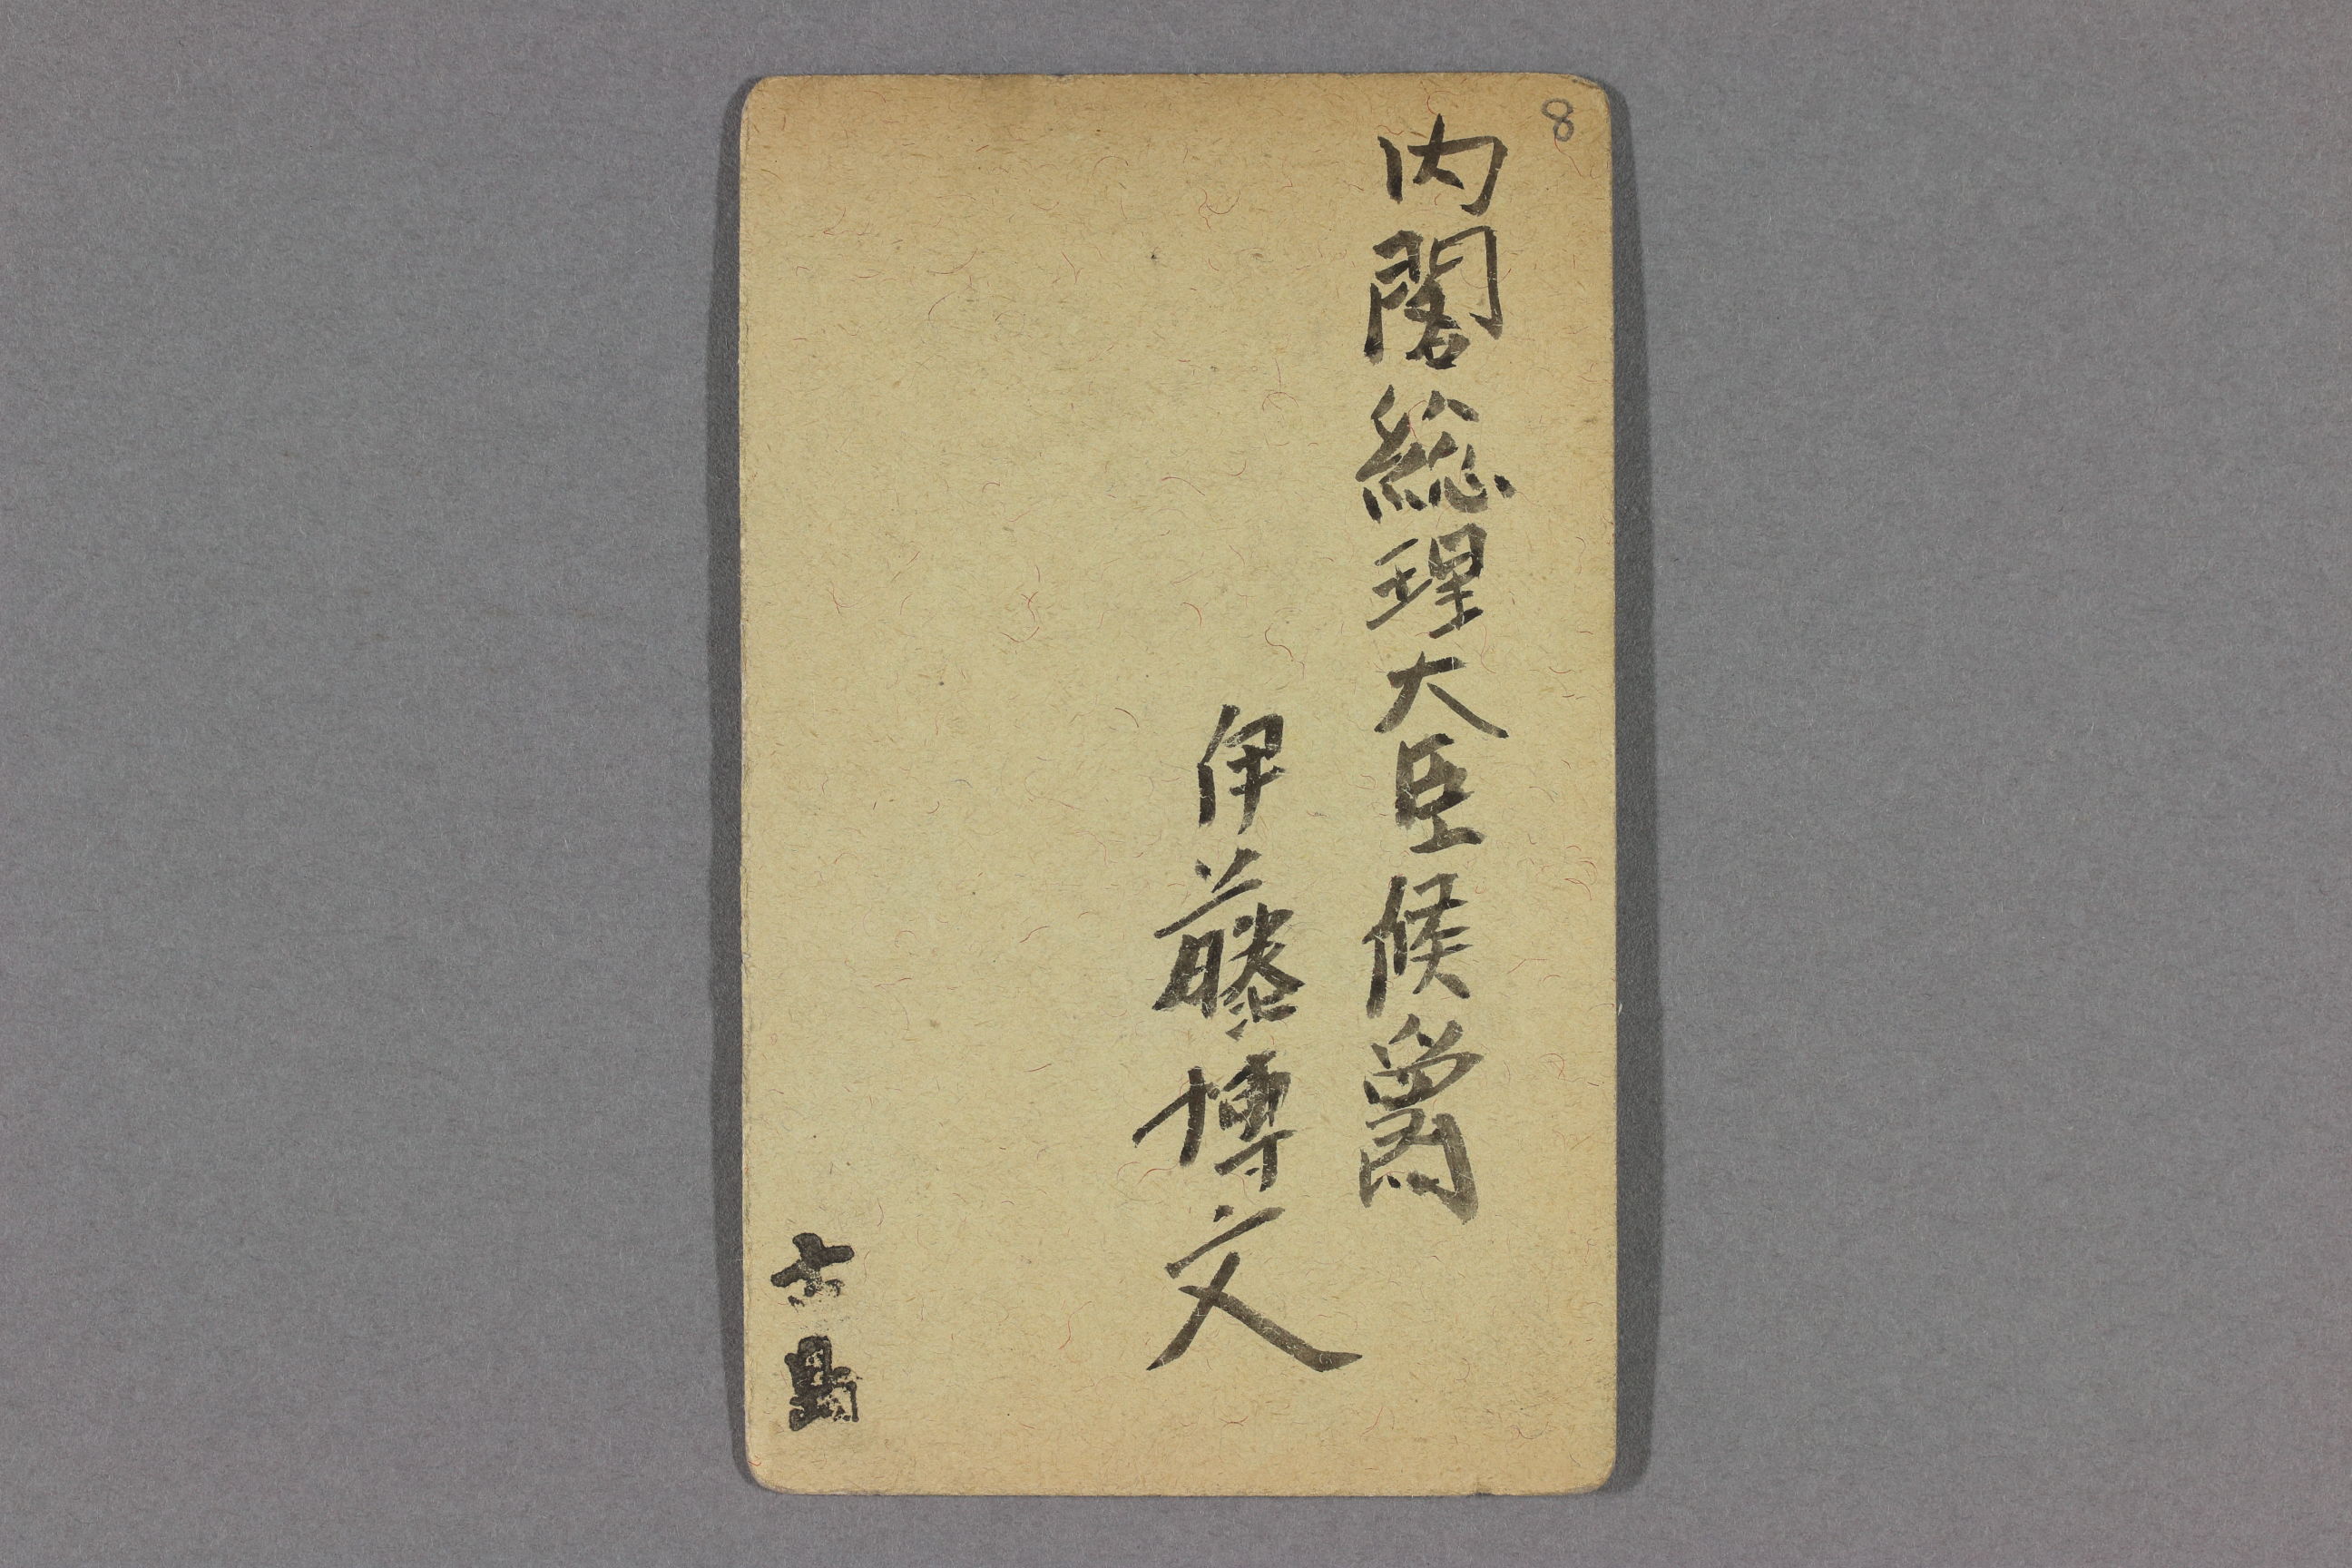 8
内閣総理大臣候爵
伊藤博文
島